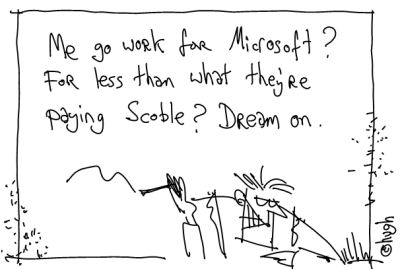 Me go work for Microsoft?
For less than what they're
paying Scoble? Dream on.
©hugh